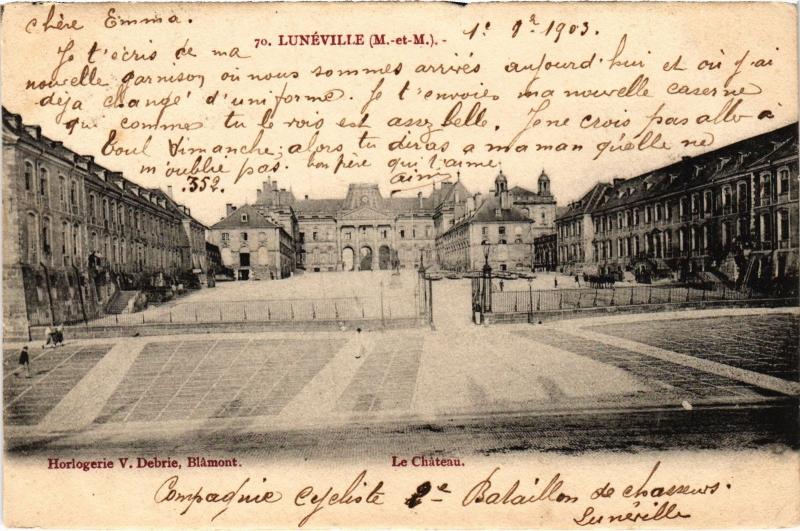 chère Emma.
70. LUNÉVILLE (M.-et-M.). -
1903.
Je t'écris de ma
nouvelle garnison où nous sommes arrivés aujourd'hui et où j'ai
déja changé d'uniforme. Je t'envoies ma nouvelle caserne
qui comme tu le vois est assez belle. Je ne crois pas allé à
Toul Dimanche; alors tu diras a maman qu'elle ne
m'oublie pas. ton père qui t'aime
352.
Horlogerie V. Debrie, Blâmont.
Le Château.
Compagnie Cycliste 2e Bataillon de chasseurs.
Lunéville